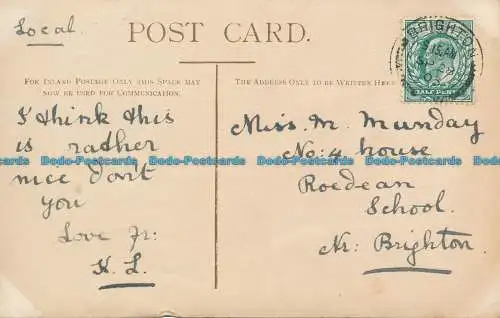 Local
POST CARD.
FOR INLAND POSTAGE ONLY THIS SPACE MAY
NOW BE USED FOR COMMUNICATION.
THE ADDRESS ONLY TO BE WRITTEN HERE
BRIGHTON
HALF PENNY
I think this
is radher
nice don't
you
Love fr:
K. L.
Miss. M. Munday
No: 4 house
Roedean
School.
Nr: Brighton.
Dodo-Postcards Dodo-Postcards Dodo-Postcards Dodo-Postcards